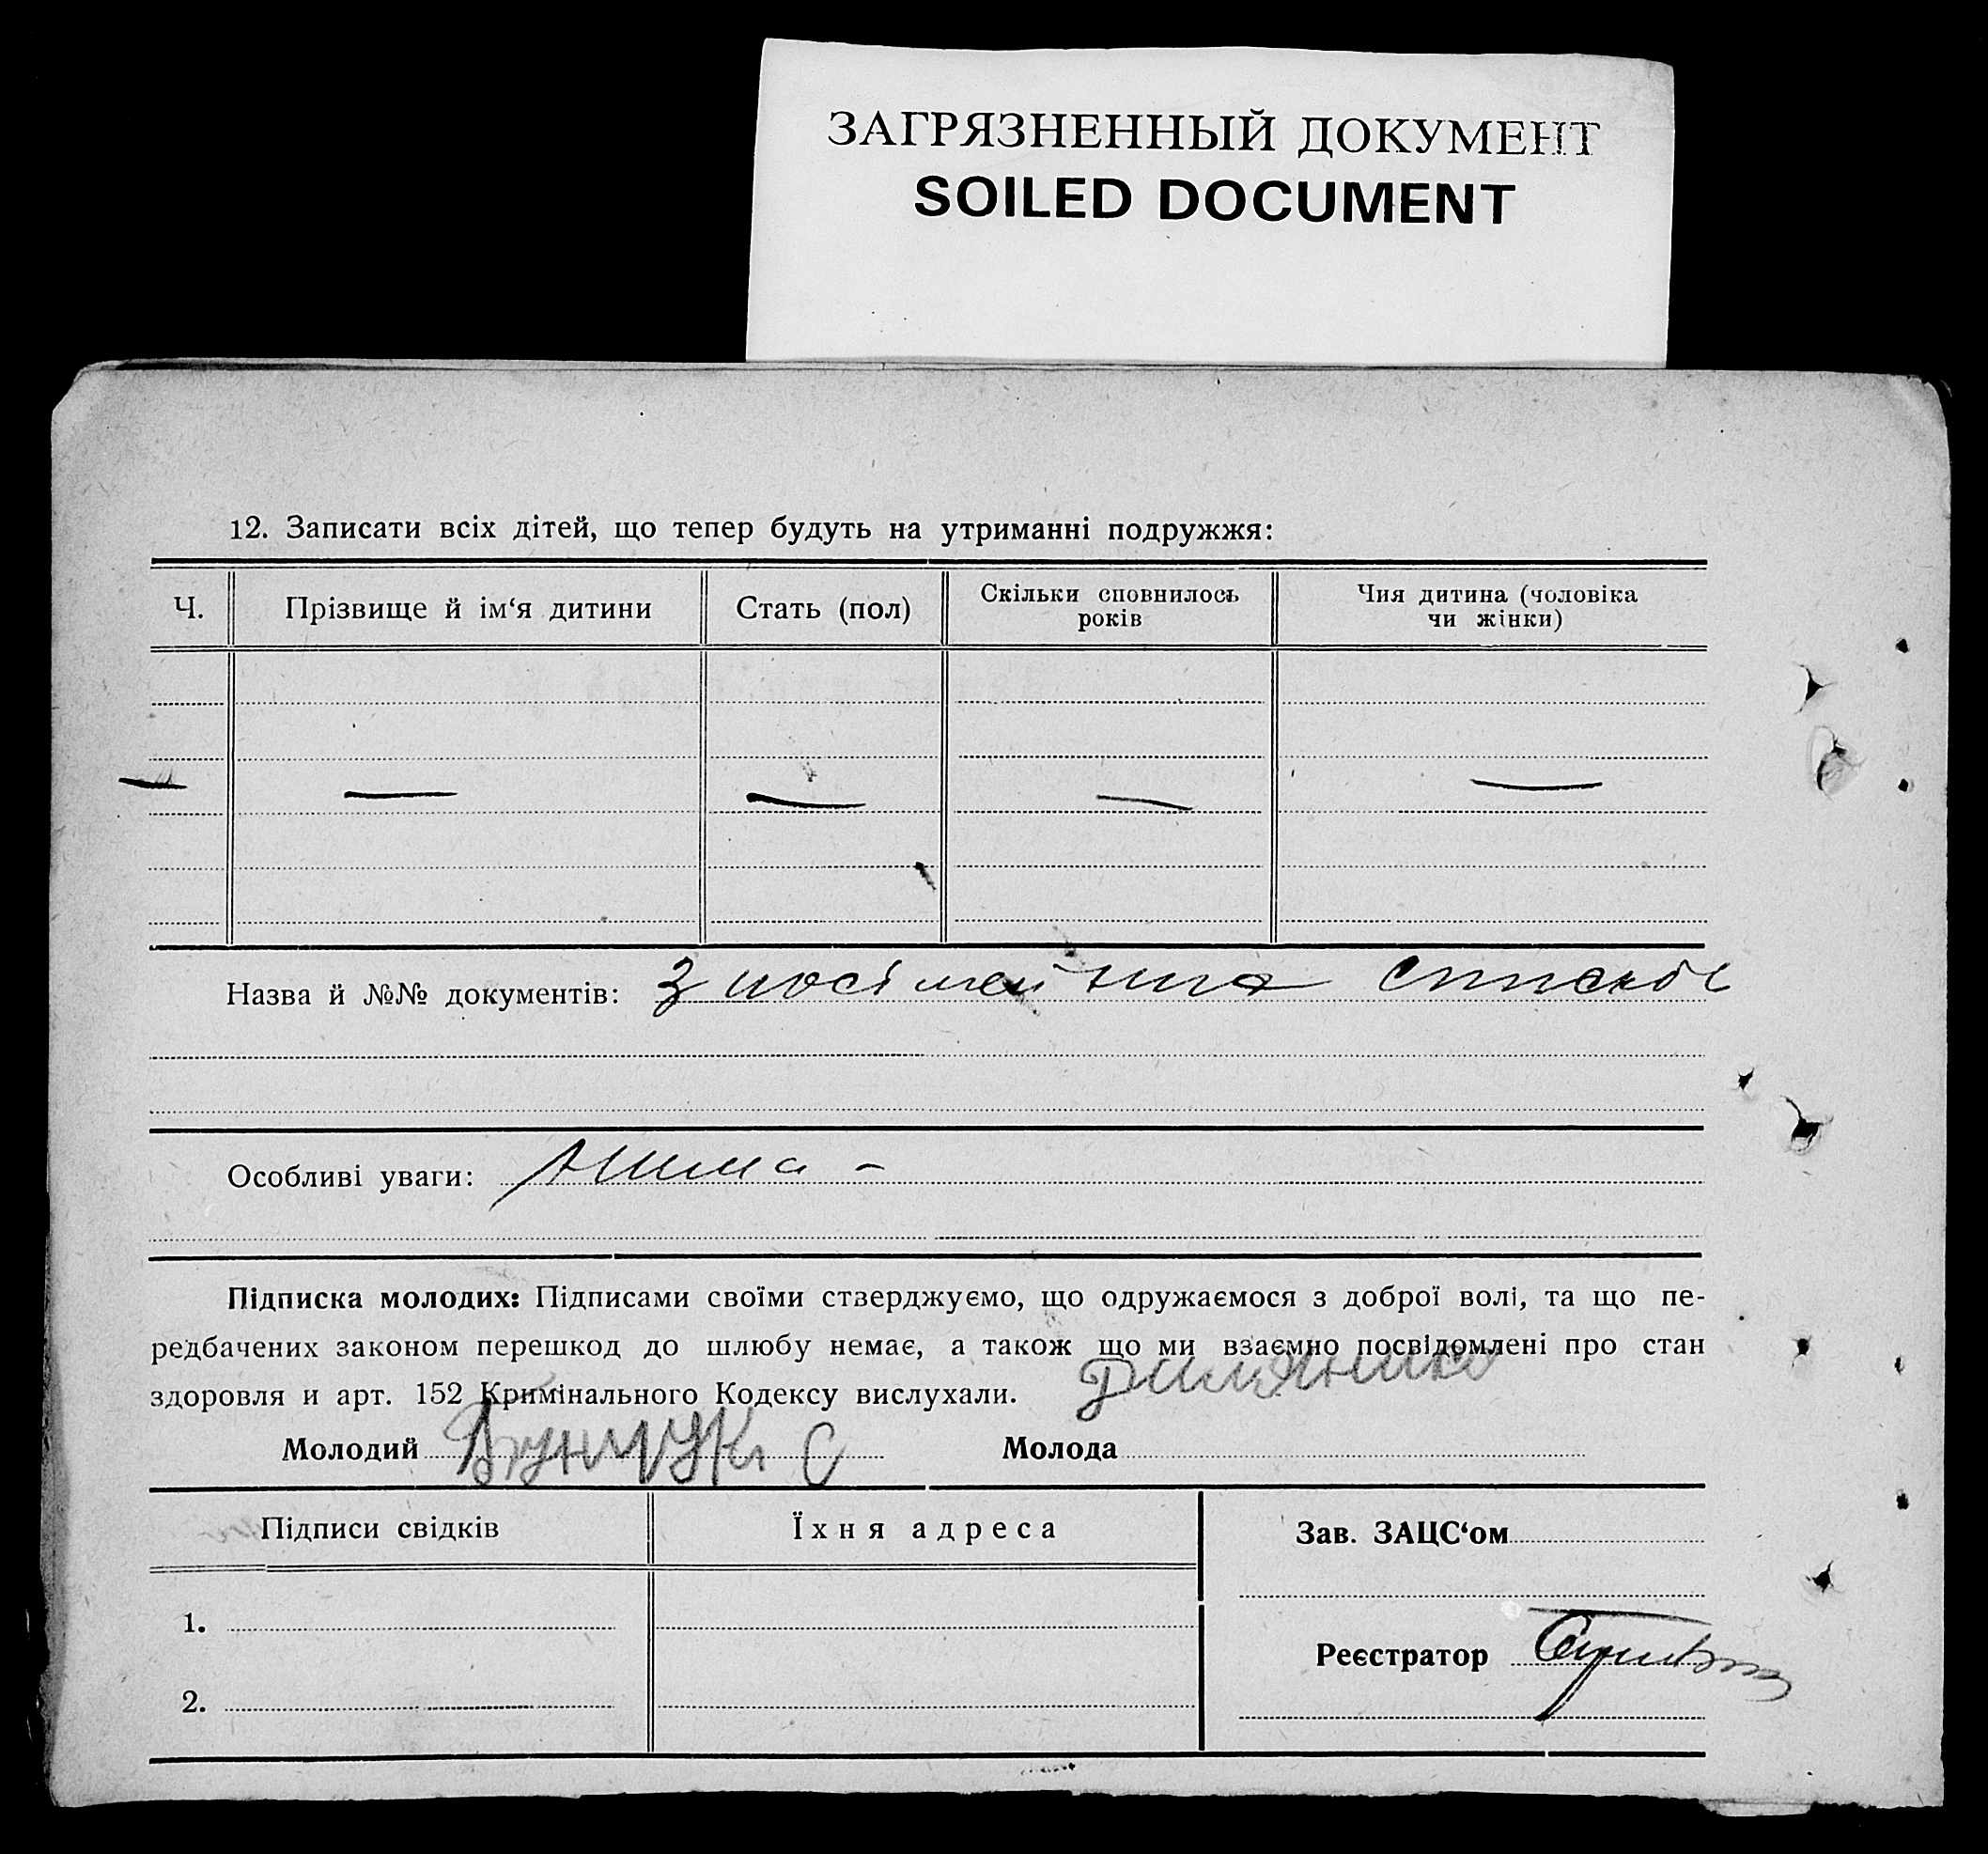 ЗАГРЯЗНЕННЫЙ ДОКУМЕНТ
SOILED DOCUMENT
12. Записати всіх дітей, що тепер будуть на утриманні подружжя:
Ч. Прізвище й ім‘я дитини Стать (пол) Скільки сповнилось років Чия дитина (чоловіка чи жінки)
— — — — —
Назва й №№ документів: З посімейних списків
Особливі уваги:
Підписка молодих: Підписами своїми стверджуємо, що одружаємося з доброї волі, та що пе-
редбачених законом перешкод до шлюбу немає, а також що ми взаємно посвідомлені про стан
здоровля и арт. 152 Кримінального Кодексу вислухали.
Молодий Бунчук С Молода
Підписи свідків Їхня адреса Зав. ЗАЦС‘ом
1.
Реєстратор
2.